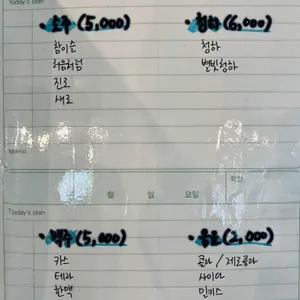 Today's plan
• 소주 (5,000)
참이슬
처음처럼
진로
새로
• 청하 (6,000)
청하
별빛청하
Memo
확인
월 일 요일
Today's plan
• 맥주 (5,000)
카스
테라
한맥
• 음료 (2,000)
콜라 / 제로콜라
사이다
밀키스